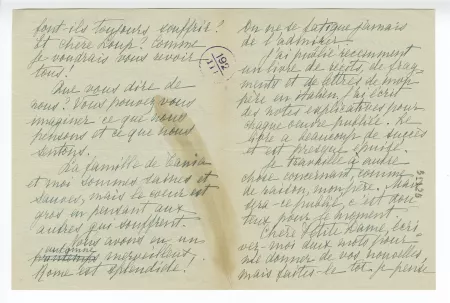 font-ils toujours souffrir?
Et Chère Loup? Comme
je voudrais vous revoir
tous!
Que vous dire de
nous? Vous pouvez vous
imaginer ce que nous
pensons et ce que nous
sentons.
La famille de Tania
et moi sommes saines et
sauves, mais le cœur est
gros en pensant aux
autres qui souffrent.
Nous avons eu un
automne
printemps merveilleux,
Rome est splendide!
On ne se fatigue jamais
de l'admirer.
J'ai publié récemment
un livre de récits, de frag-
ments et de lettres de mon
père en italien. J'ai écrit
des notes explicatives pour
chaque œuvre publiée. Le
livre a beaucoup de succès
et est presque épuisé.
Je travaille à autre
chose concernant, comme
de raison, mon père. Mais
sera-ce publié, c'est dou-
teux pour le moment.
Chère Petite Dame, écri-
vez-moi deux mots pour
me donner de vos nouvelles,
mais faites-le tôt. Je pense